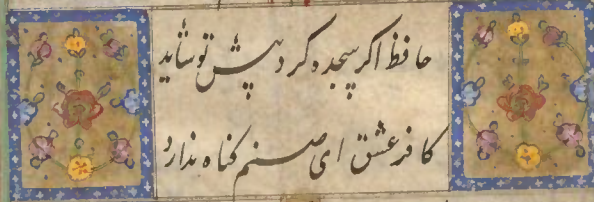 حافظ اگر سجده کرد پیش تو شاید
کافر عشق ای صنم گناه ندارد